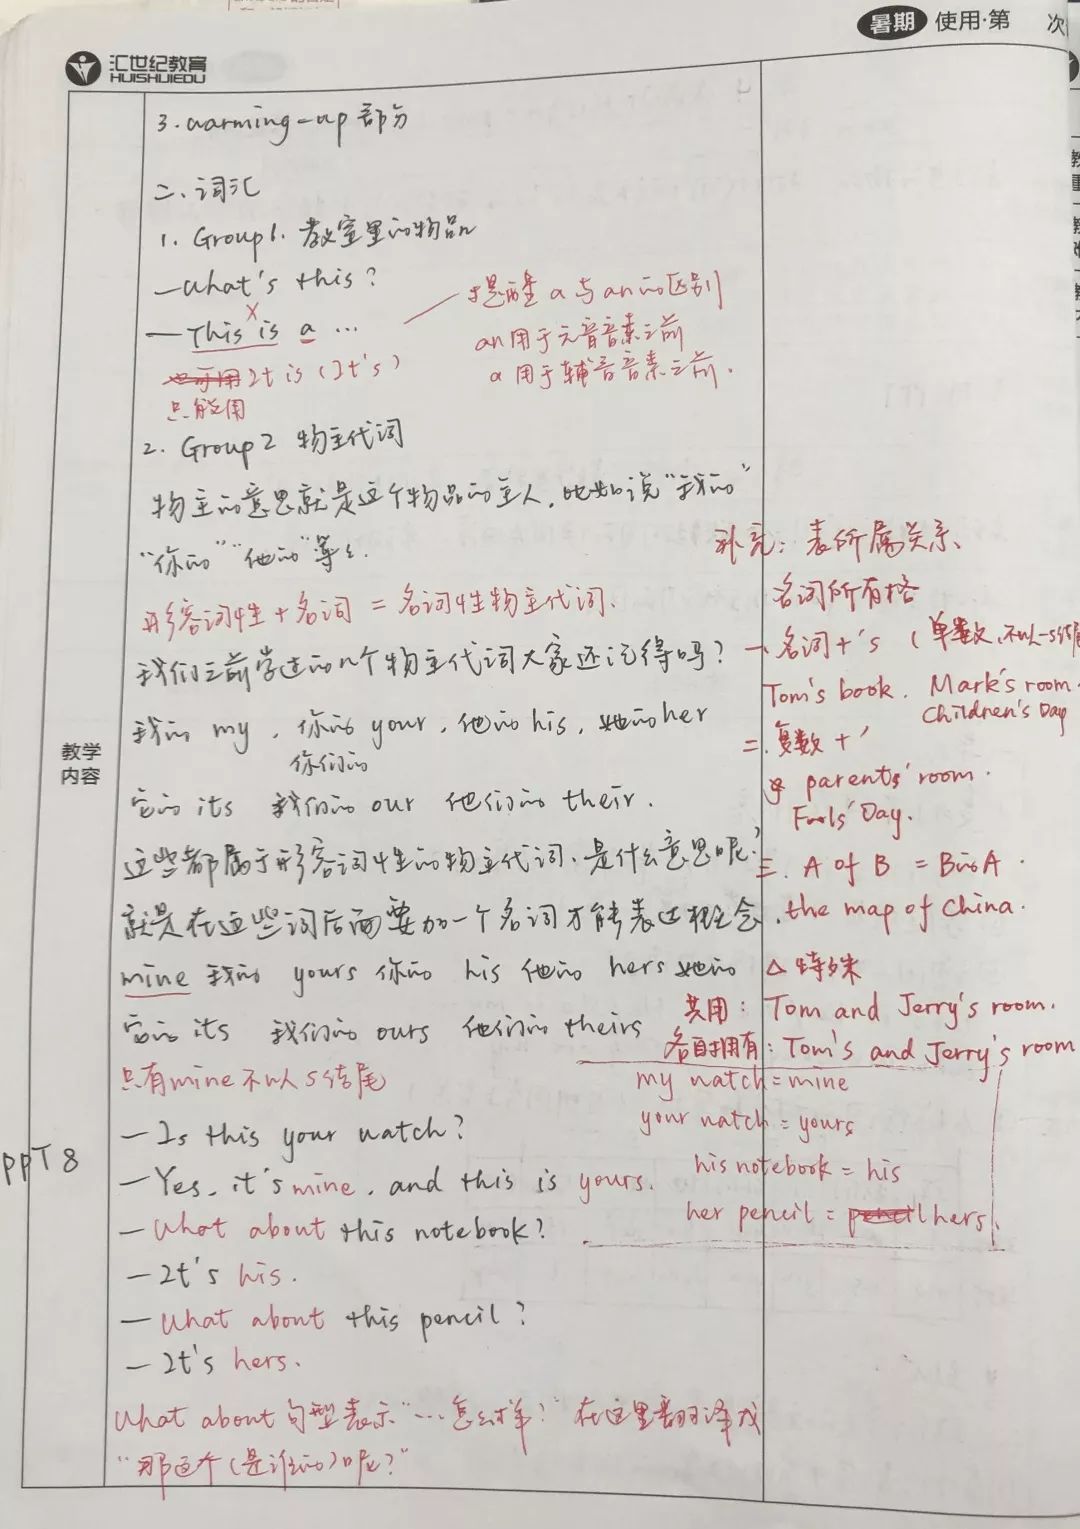 暑期 使用·第 次
汇世纪教育
HUISHIJIEDU
3. warming-up 部分
二、词汇
1. Group1. 教室里的物品
—What's this?
—This is a ...
×
也可用 It is (It's)
只能用
提醒 a 与 an 的区别
an 用于元音音素之前
a 用于辅音音素之前.
2. Group 2 物主代词
物主的意思就是这个物品的主人, 比如说“我的”
“你的”“他的”等等.
形容词性+名词 = 名词性物主代词.
我们之前学过的几个物主代词大家还记得吗?
我的 my, 你的 your, 他的 his, 她的 her
你们的
它的 its 我们的 our 他们的 their.
教学
内容
这些都属于形容词性的物主代词、是什么意思呢?
就是在这些词后面要加一个名词才能表达概念.
mine 我的 yours 你的 his 他的 hers 她的
它的 its 我们的 ours 他们的 theirs
只有mine不以s结尾
PPT 8
—Is this your watch?
—Yes, it's mine, and this is yours.
—What about this notebook?
—It's his.
—What about this pencil?
—It's hers.
What about 句型表示“...怎么样?” 在这里翻译成
“那这个(是谁的)呢?”
补充: 表所属关系、
名词所有格
一. 名词+'s (单数, 不以-s结尾
Tom's book. Mark's room.
Children's Day
二. 复数+'
parents' room.
Fools' Day.
三. A of B = B的A.
the map of China.
△特殊
共用: Tom and Jerry's room.
各自拥有: Tom's and Jerry's room
my watch = mine
your watch = yours
his notebook = his
her pencil = pencil hers.